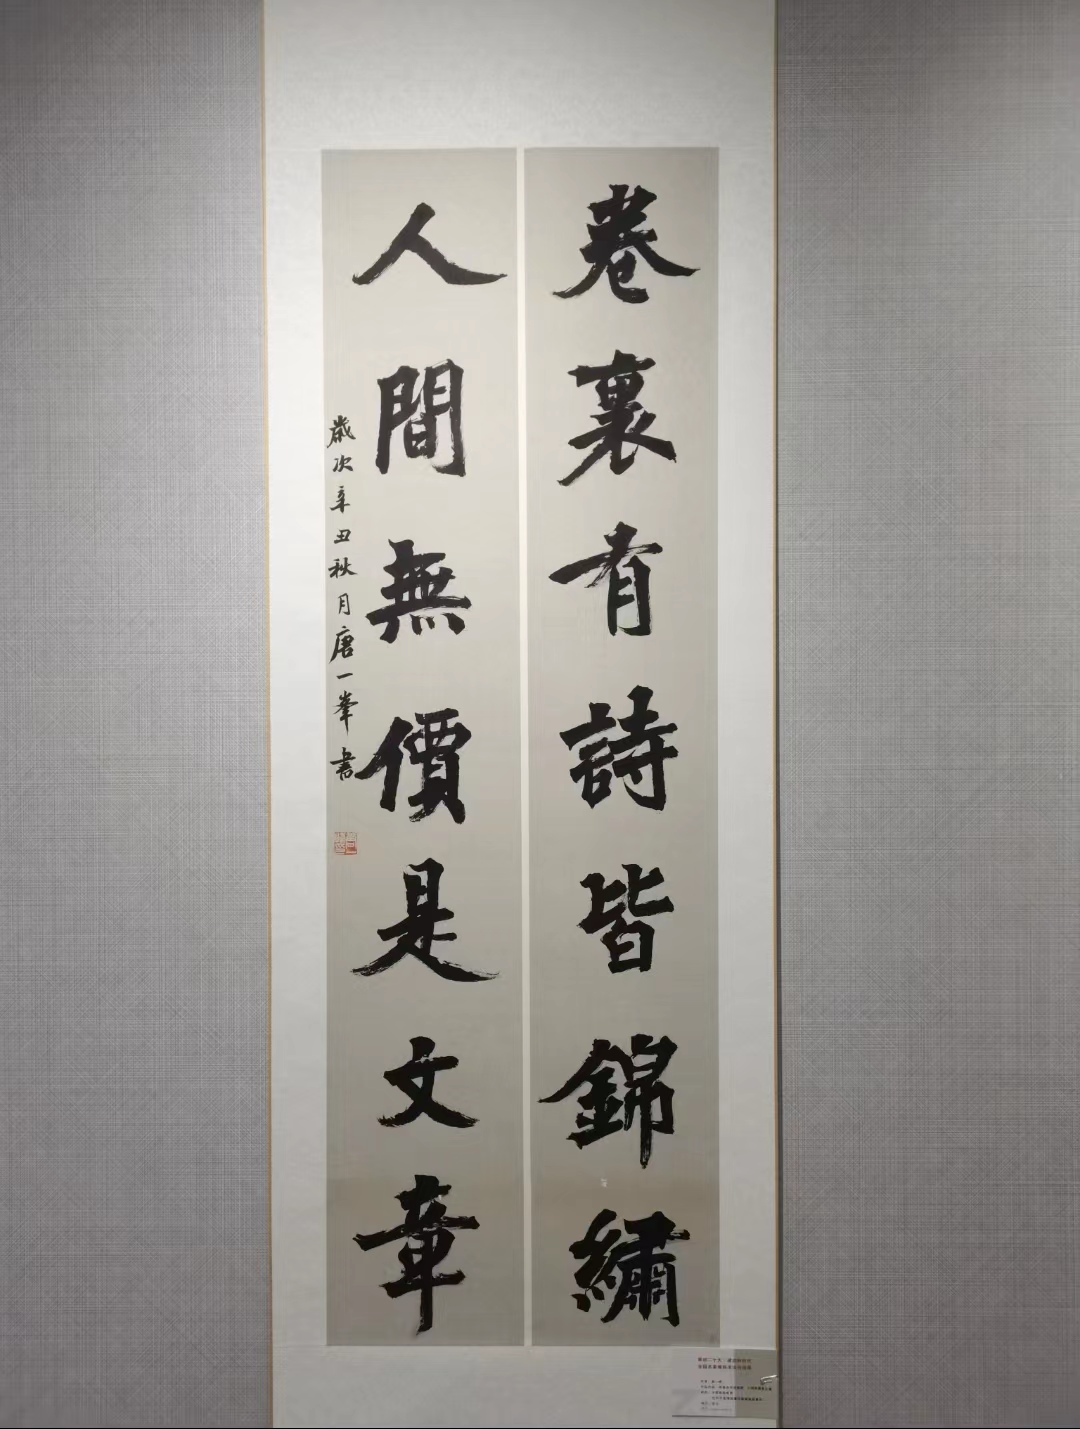 卷裏有詩皆錦繡
人間無價是文章
歲次辛丑秋月唐一峯書